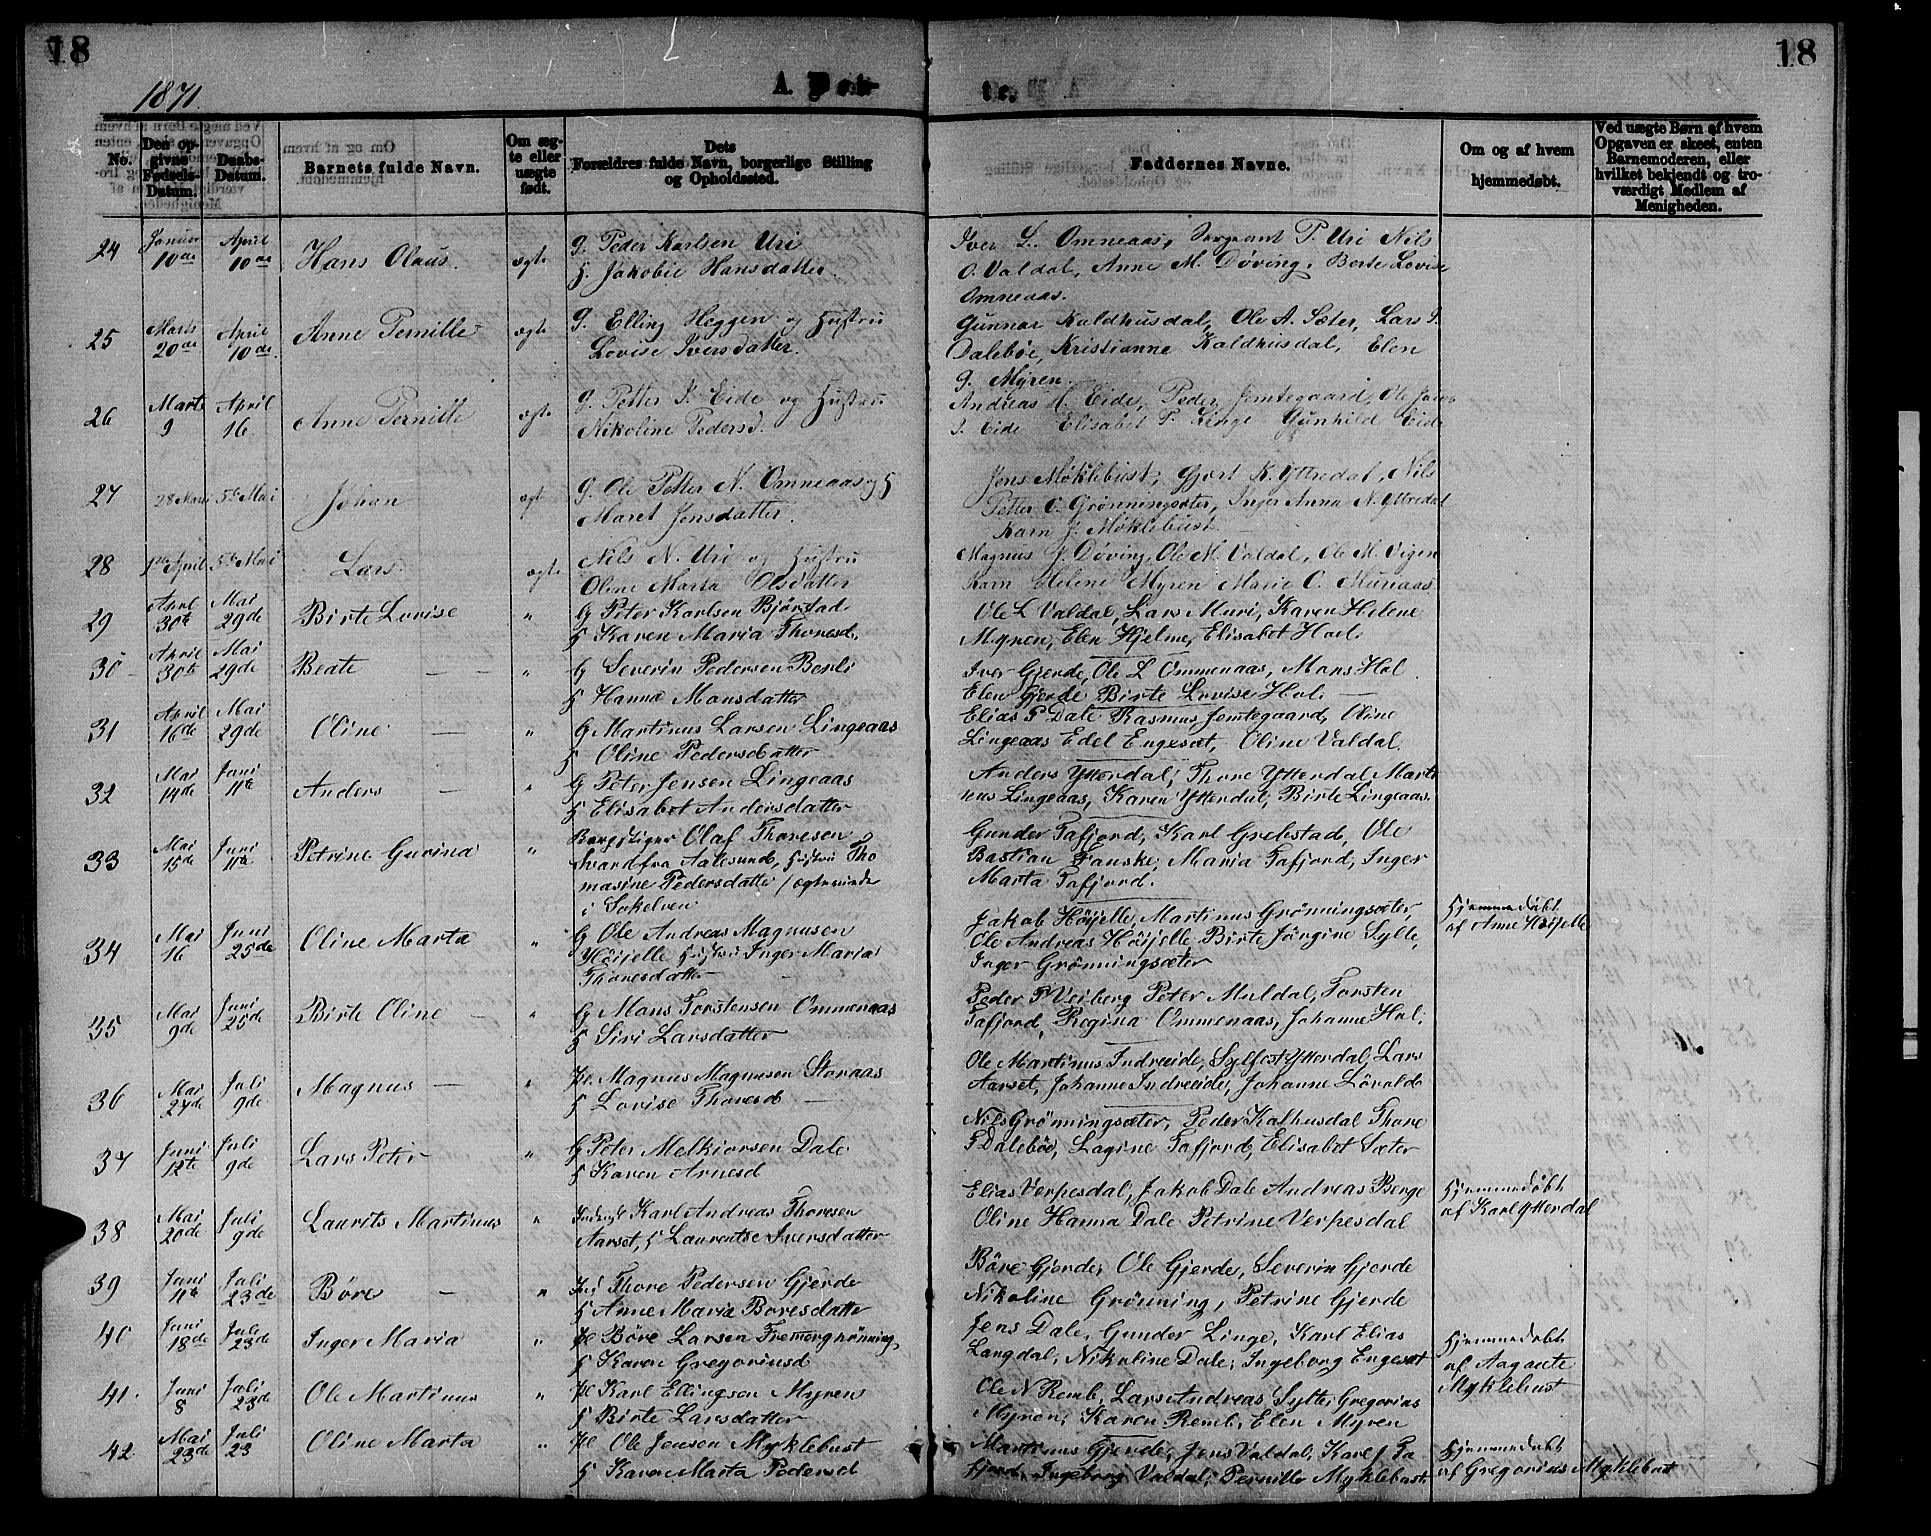 18
18
1871.
A. Døb-
te.
No.
Den op-
givne
Fødsels-
Datum.
Daabs-
Datum.
Barnets fulde Navn.
Om æg-
te eller
uægte
født.
Dets
Forældres fulde Navn, borgerlige Stilling
og Opholdssted.
Faddernes Navne.
Om og af hvem
hjemmedøbt.
Ved uægte Børn af hvem
Opgaven er skeet, enten
Barnemoderen, eller
hvilket bekjendt og tro-
værdigt Medlem af
Menigheden.
24 Januar 10de April 10de Hans Olaus. ægte G. Peder Karlsen Uri
H. Jakobie Hansdatter.
Iver L. Omneaas, Sergeant P. Uri Nils
O. Valdal, Anne M. Døving, Berte Lovise
Omneaas.
25 Marts 20de April 10de. Anne Pernille ægte G. Elling Heggen og Hustru
Lovise Iversdatter.
Gunnar Kaldhusdal, Ole A. Sæter, Lars P.
Dalebøe, Kristianne Kaldhusdal, Elen
G. Myren.
26 Marts 9 April 16. Anne Pernille ægt G. Petter P. Eide og Hustru
Nikoline Pedersd.
Andreas H. Eide, Peder Jemtegaard, Ole Jakob
P. Eide Elisabet P. Linge Gunhild Eide
27 28 Marts 5te Mai Johan ægt G. Ole Petter N. Omneaas og H
Maret Jensdatter.
Jens Møklebust, Gjørt K. Yttredal, Nils
Petter O. Grønningsæter, Inger Anna N. Yttredal
Karn J. Møklebust
28 1ste April 5te Mai Lars. ægte Nils N. Uri og Hustru
Oline Marta Olsdatter
Magnus J. Døving, Ole M. Valdal, Ole M. Vigen
Karn Helene Myren Marie O. Muriaas
29 April 30te Mai 29de Birte Lovise " G Peter Karlsen Bjørstad
H Karen Maria Thoresd.
Ole L Valdal, Lars Muri, Karen Helene
Myren, Elen Hjelme, Elisabet Hol.
30 April 30te Mai 29de Beate " G Severin Pedersen Berli
H Hanna Mansdatter
Iver Gjerde, Ole L Ommenaas, Mons Hol.
Elen Gjerde Birte Lovise Hol.
31 April 16de Mai 29de Oline " G Martinus Larsen Lingeaas
H Oline Pedersdatter
Elias P Dale Rasmus Jemtegaard, Oline
Lingeaas Edel Engeset, Oline Valdal.
32 Mai 14de Juni 11te Anders " G Peter Jensen Lingeaas
H Elisabet Andersdatter
Anders Ytterdal, Thore Ytterdal Marti
nus Lingeaas, Karen Ytterdal, Birte Lingeaas.
33 Mai 15de Juni 11te Petrine Gurina " Borg Olaf Thoresen
fra Aalesund, Hustru Tho
masine Pedersdatter
i Søkelven
Gunder Tafjord, Karl Grebstad, Ole
Bastian Fauske, Maria Tafjord, Inger
Marta Tafjord.
34 Mai 16 Juni 25de Oline Marta " G Ole Andreas Magnusen
Høijelle Hustru Inger Maria
Thoresdatter
Jakob Høijelle Martinus Grønningsæter,
Ole Andreas Høijelle Birte Jørgine Sylte,
Inger Grønningsæter
Hjemmedøbt
af Anne Høijelle
35 Mai 9de Juni 25de Birte Oline " G Mons Torstensen Ommenaas
H Siri Larsdatter
Peder P Veiberg Peter Muldal, Torsten
Tafjord, Regina Ommenaas, Johanne Hol.
36 Mai 24de Juli 9de Magnus " Pl Magnus Magnusen Storaas
H Lovise Thoresd
Ole Martinus Indreeide, Sylfest Ytterdal, Lars
Aarset, Johanne Indreeide, Johanne Løvold
37 Juni 12te Juli 9de Lars Peter " G Peter Melkiorsen Dale
H Karen Arnesd
Nils Grønningsæter, Peder Kalhusdal Thore
P Dalebøe, Lagine Tafjord, Elisabet Sæter
38 Mai 20de Juli 9de Laurits Martinus " Inderst Karl Andreas Thoresen
Aarset, H Laurentse Iversdatter
Elias Verpesdal, Jakob Dale Andreas Berge
Oline Hanna Dale Petrine Verpesdal
Hjemmedøbt
af Karl Ytterdal
39 Juni 11te Juli 23de Børe " Ind Thore Pedersen Gjerde
H Anne Maria Boresdatter
Børe Gjerde, Ole Gjerde, Severin Gjerde
Nikoline Grønning, Petrine Gjerde
40 Juni 18de Juli 23de Inger Maria " Pl Børe Larsen Fremergrønning,
H Karen Gregoriusd
Jens Dale, Gunder Linge, Karl Elias
Langdal, Nikoline Dale, Ingeborg Engeset
Hjemmedøbt
af Aagaate
Myklebust
41 Juni 8 Juli 23de Ole Martinus " Pl Karl Ellingsen Myren
H Birte Larsdatter
Ole N Remb, Lars Andreas Sylte, Gregorius
Myren, Karen Remb, Elen Myren
42 Mai 23de Juli 23 Oline Marta " Pl Ole Jensen Myklebust
H Karen Marta Pedersd
Martinus Gjerde, Jens Valdal, Karl J Ta
fjord, Ingeborg Valdal, Pernille Myklebust
Hjemmedøbt
af Gregorius Myklebust